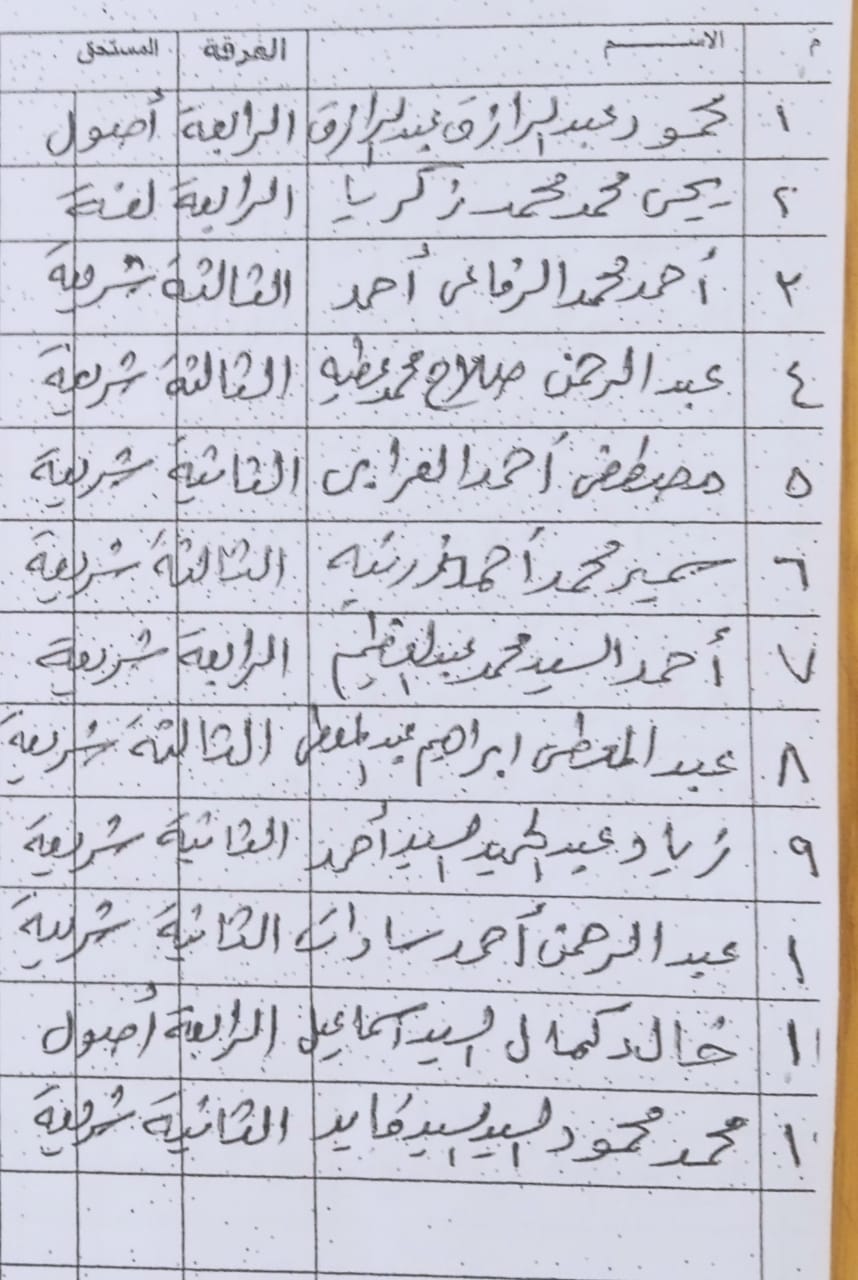 م الاسم الفرقة المستحق
١ محمود عبد الرازق عبد الرازق الرابعة أصول
٢ يحيى محمد محمد زكريا الرابعة لغة
٣ أحمد محمد الرفاعى أحمد الثالثة شريعة
٤ عبد الرحمن صلاح محمد عطيه الثالثة شريعة
٥ مصطفى أحمد الغرابى الثانية شريعة
٦ سمير محمد أحمد الثالثة شريعة
٧ أحمد السيد محمد عبد العظيم الرابعة شريعة
٨ عبد المعطى ابراهيم عبد المعطى الثالثة شريعة
٩ زياد عبد الحميد السيد أحمد الثانية شريعة
١ عبد الرحمن أحمد سادات الثانية شريعة
١١ خالد كمال السيد اسماعيل الرابعة أصول
١ محمد محمود السيد السيد فايد الثانية شريعة